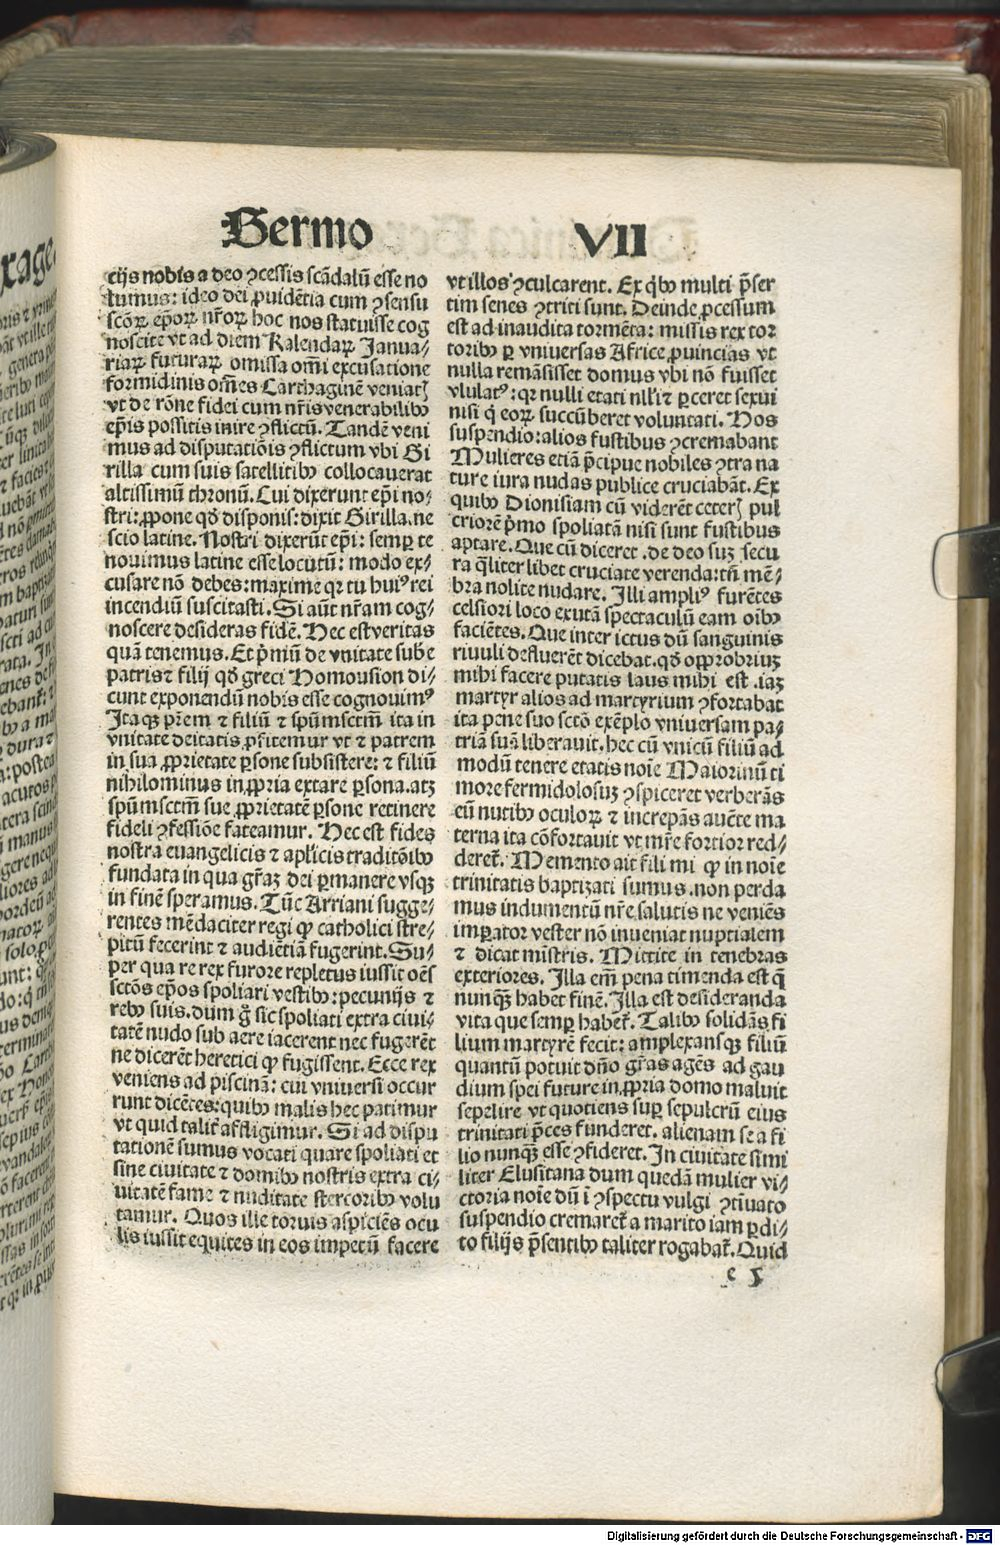 Sermo VII
cijs nobis a deo ꝯcessis scādalū esse no
lumus: ideo dei ꝓuidētia cum ꝯsensu
scōꝝ epōꝝ nr̄oꝝ hoc nos statuisse cog
noscite vt ad diem Kalendaꝝ Janua⸗
riaꝝ futuraꝝ omissa om̄i excusatione
formidinis om̄es Carthaginē veniatꝭ
vt de rōne fidei cum nr̄is venerabilibꝰ
ep̄is possitis inire ꝯflictū. Tandē veni
mus ad disputatiōis ꝯflictum vbi Gi
rilla cum suis satellitibꝰ collocauerat
altissimū thronū. Cui dixerunt ep̄i no⸗
stri: ꝓpone qd̄ disponis: dixit Girilla. ne
scio latine. Nostri dixerūt ep̄i: semꝑ te
nouimus latine esse locutū: modo ex⸗
cusare nō debes: maxime qꝛ tu huiꝰ rei
incendiū suscitasti. Si aūt nr̄am cog⸗
noscere desideras fidē. Hec est veritas
quā tenemus. Et p̄mū de vnitate sub̄e
patris ⁊ filij qd̄ greci Homousion di⸗
cunt exponendū nobis esse cognouimꝰ
Itaqꝫ pr̄em ⁊ filiū ⁊ spūmsctm̄ ita in
vnitate deitatis ꝓfitemur vt ⁊ patrem
in sua ꝓprietate ꝑsone subsistere: ⁊ filiū
nihilominus in ꝓpria extare ꝑsona. atqꝫ
spūmsctm̄ sue ꝓprietatē ꝑsone retinere
fideli ꝯfessiōe fateamur. Hec est fides
nostra euangelicis ⁊ apl̄icis traditōibꝰ
fundata in qua gr̄aꝫ dei ꝑmanere vsqꝫ
in finē speramus. Tūc Arriani sugge⸗
rentes mēdaciter regi ꝙ catholici stre⸗
pitū fecerint ⁊ audiētiā fugerint. Su⸗
per qua re rex furore repletus iussit oēs
sctōs ep̄os spoliari vestibꝰ: pecunijs ⁊
rebꝰ suis. dum g̊ sic spoliati extra ciui⸗
tatē nudo sub aere iacerent nec fugerēt
ne dicerēt heretici ꝙ fugissent. Ecce rex
veniens ad piscinā: cui vniuersi occur
runt dicētes: quibꝰ malis hec patimur
vt quid talit̄ affligimur. Si ad dispu
tationē sumus vocati quare spoliati et
sine ciuitate ⁊ domibꝰ nostris extra ci⸗
uitatē fame ⁊ nuditate stercoribꝰ volu
tamur. Quos ille toruis aspiciēs ocu
lis iussit equites in eos impetū facere
vt illos ꝯculcarent. Ex q̇bꝰ multi p̄ser
tim senes ꝯtriti sunt. Deinde ꝓcessum
est ad inaudita tormēta: missis rex tor
toribꝰ ꝑ vniuersas Africe ꝓuincias vt
nulla remāsisset domus vbi nō fuisset
vlulatꝰ: qꝛ nulli etati nll̓i ⁊ ꝑceret sexui
nisi q̇ eoꝝ succūberet voluntati. Hos
suspendio: alios fustibus ꝯcremabant
Mulieres etiā p̄cipue nobiles ꝯtra na
ture iura nudas publice cruciabāt. Ex
quibꝰ Dionisiam cū viderēt ceterꝭ pul
criorē p̄mo spoliatā nisi sunt fustibus
aptare. Que cū diceret. de deo suꝫ secu
ra q̄liter libet cruciate verenda: tn̄ mē⸗
bra nolite nudare. Illi ampliꝰ furētes
celsiori loco exutā spectaculū eam oībꝰ
faciētes. Que inter ictus dū sanguinis
riuuli defluerēt dicebat. qd̄ opprobriuꝫ
mihi facere putatis laus mihi est. iaꝫ
martyr alios ad martyrium ꝯfortabat
ita pene suo sctō exēplo vniuersam pa⸗
triā suā liberauit. hec cū vnicū filiū ad
modū tenere etatis noīe Maiorinū ti
more fermidolosuꝫ ꝯspiceret verberās
eū nutibꝰ oculoꝝ ⁊ increpās auēte ma
terna ita cōfortauit vt mr̄e fortior red⸗
deret̄. Memento ait fili mi ꝙ in noīe
trinitatis baptizati sumus. non perda
mus indumentū nr̄e salutis ne veniēs
imꝑator vester nō inueniat nuptialem
⁊ dicat mīstris. Mittite in tenebras
exteriores. Illa em̄ pena timenda est q̄
nunqꝫ habet finē. Illa est desideranda
vita que semꝑ habet̄. Talibꝰ solidās fi
lium martyrē fecit: amplexansqꝫ filiū
quantū potuit dn̄o gr̄as agēs ad gau
dium spei future in ꝓpria domo maluit
sepelire vt quotiens suꝑ sepulcrū eius
trinitati p̄ces funderet. alienam se a fi
lio nunqꝫ esse ꝯfideret. In ciuitate simi
liter Elusitana dum quedā mulier vi⸗
ctoria noīe dū i ꝯspectu vulgi ꝯtinuato
suspendio cremaret̄ a marito iam ꝑdi⸗
to filijs p̄sentibꝰ taliter rogabat̄. Quid
e 5
Digitalisierung gefördert durch die Deutsche Forschungsgemeinschaft - DFG